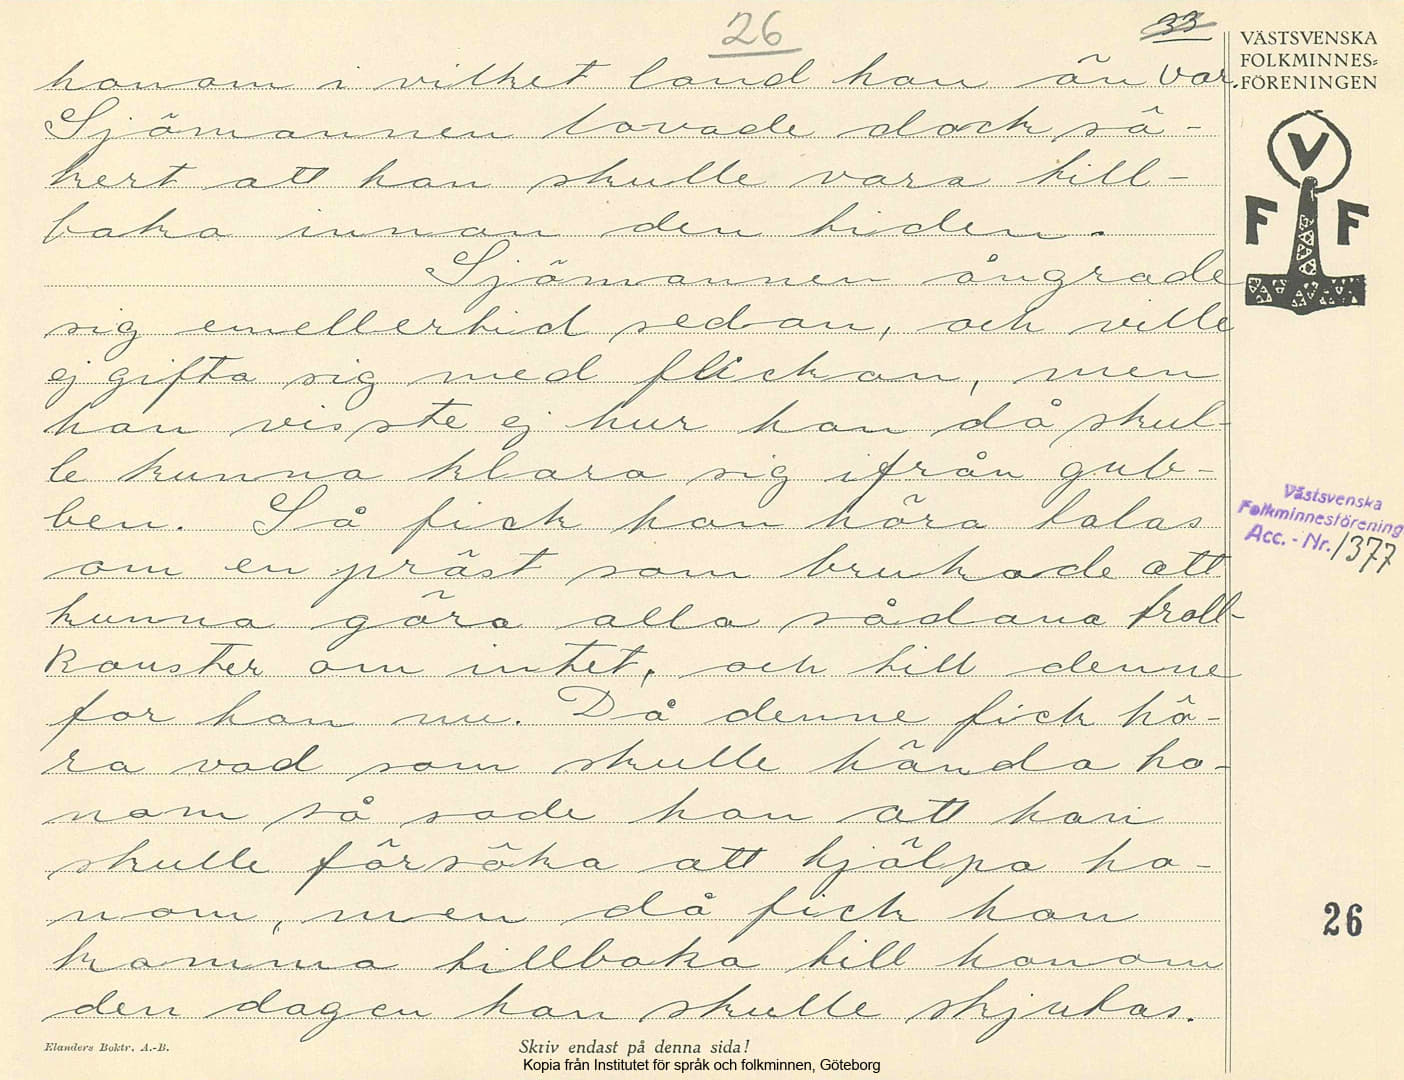 26
33
VÄSTSVENSKA
FOLKMINNES=
FÖRENINGEN
V
F F
honom i vilket land han än var.
Sjömannen lovade dock sä-
kert att han skulle vara till-
baka innan den tiden.
Sjömannen ångrade
sig emellertid sedan, och ville
ej gifta sig med flickan, men
han visste ej hur han då skul-
le kunna klara sig ifrån gub-
ben. Så fick han höra talas
om en präst som brukade att
kunna göra alla sådana troll-
konster om intet, och till denne
for han nu. Då denne fick hö-
ra vad som skulle hända ho-
nom så sade han att han
skulle försöka att hjälpa ho-
nom, men då fick han
komma tillbaka till honom
den dagen han skulle skjutas.
Västsvenska
Folkminnesförening
Acc. - Nr. 1377
26
Elanders Boktr. A.-B.
Skriv endast på denna sida!
Kopia från Institutet för språk och folkminnen, Göteborg